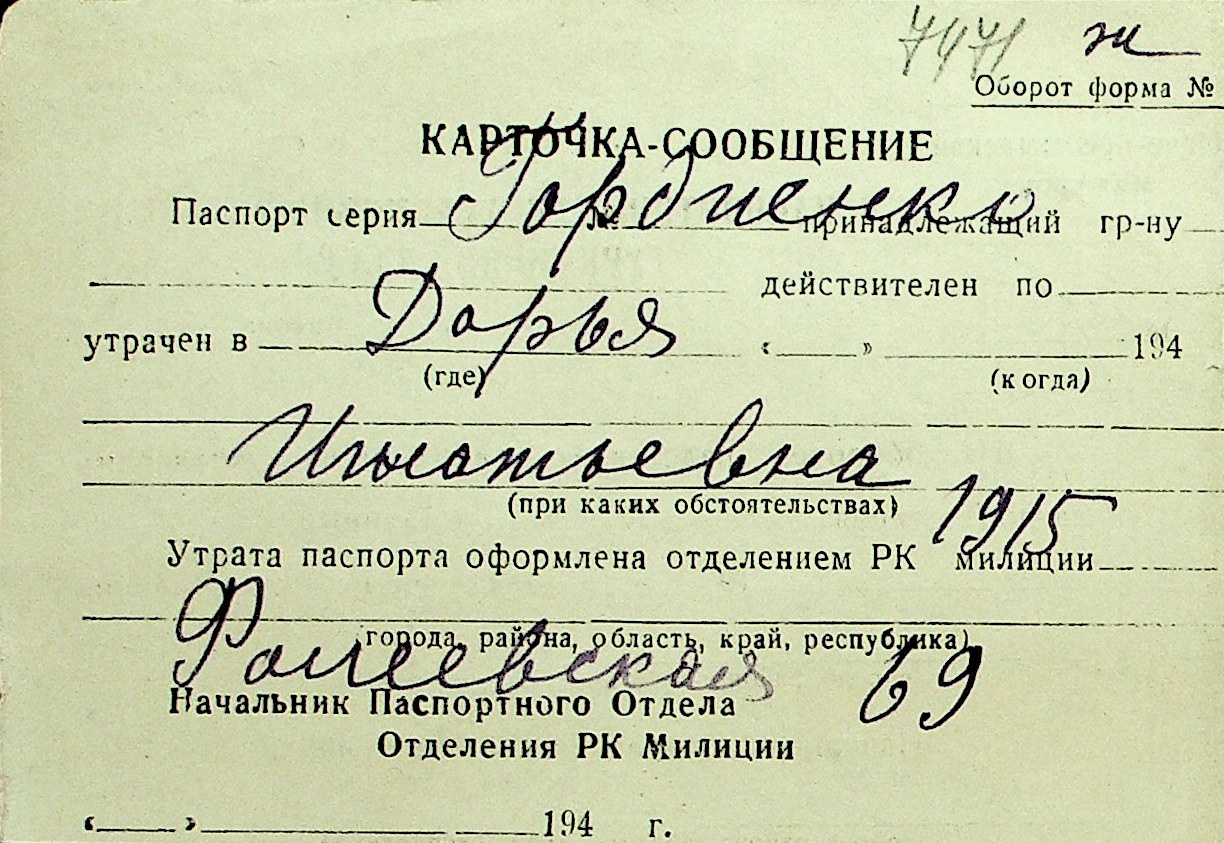 7971 ж
Оборот форма №
КАРТОЧКА-СООБЩЕНИЕ
Гордиенко
Паспорт серия № принадлежащий гр-ну
действителен по
Дарья
утрачен в « » 194
(где) (когда)
Игнатьевна
(при каких обстоятельствах)
1915
Утрата паспорта оформлена отделением РК милиции
города, района, область, край, республика)
69
Начальник Паспортного Отдела
Отделения РК Милиции
« » 194 г.